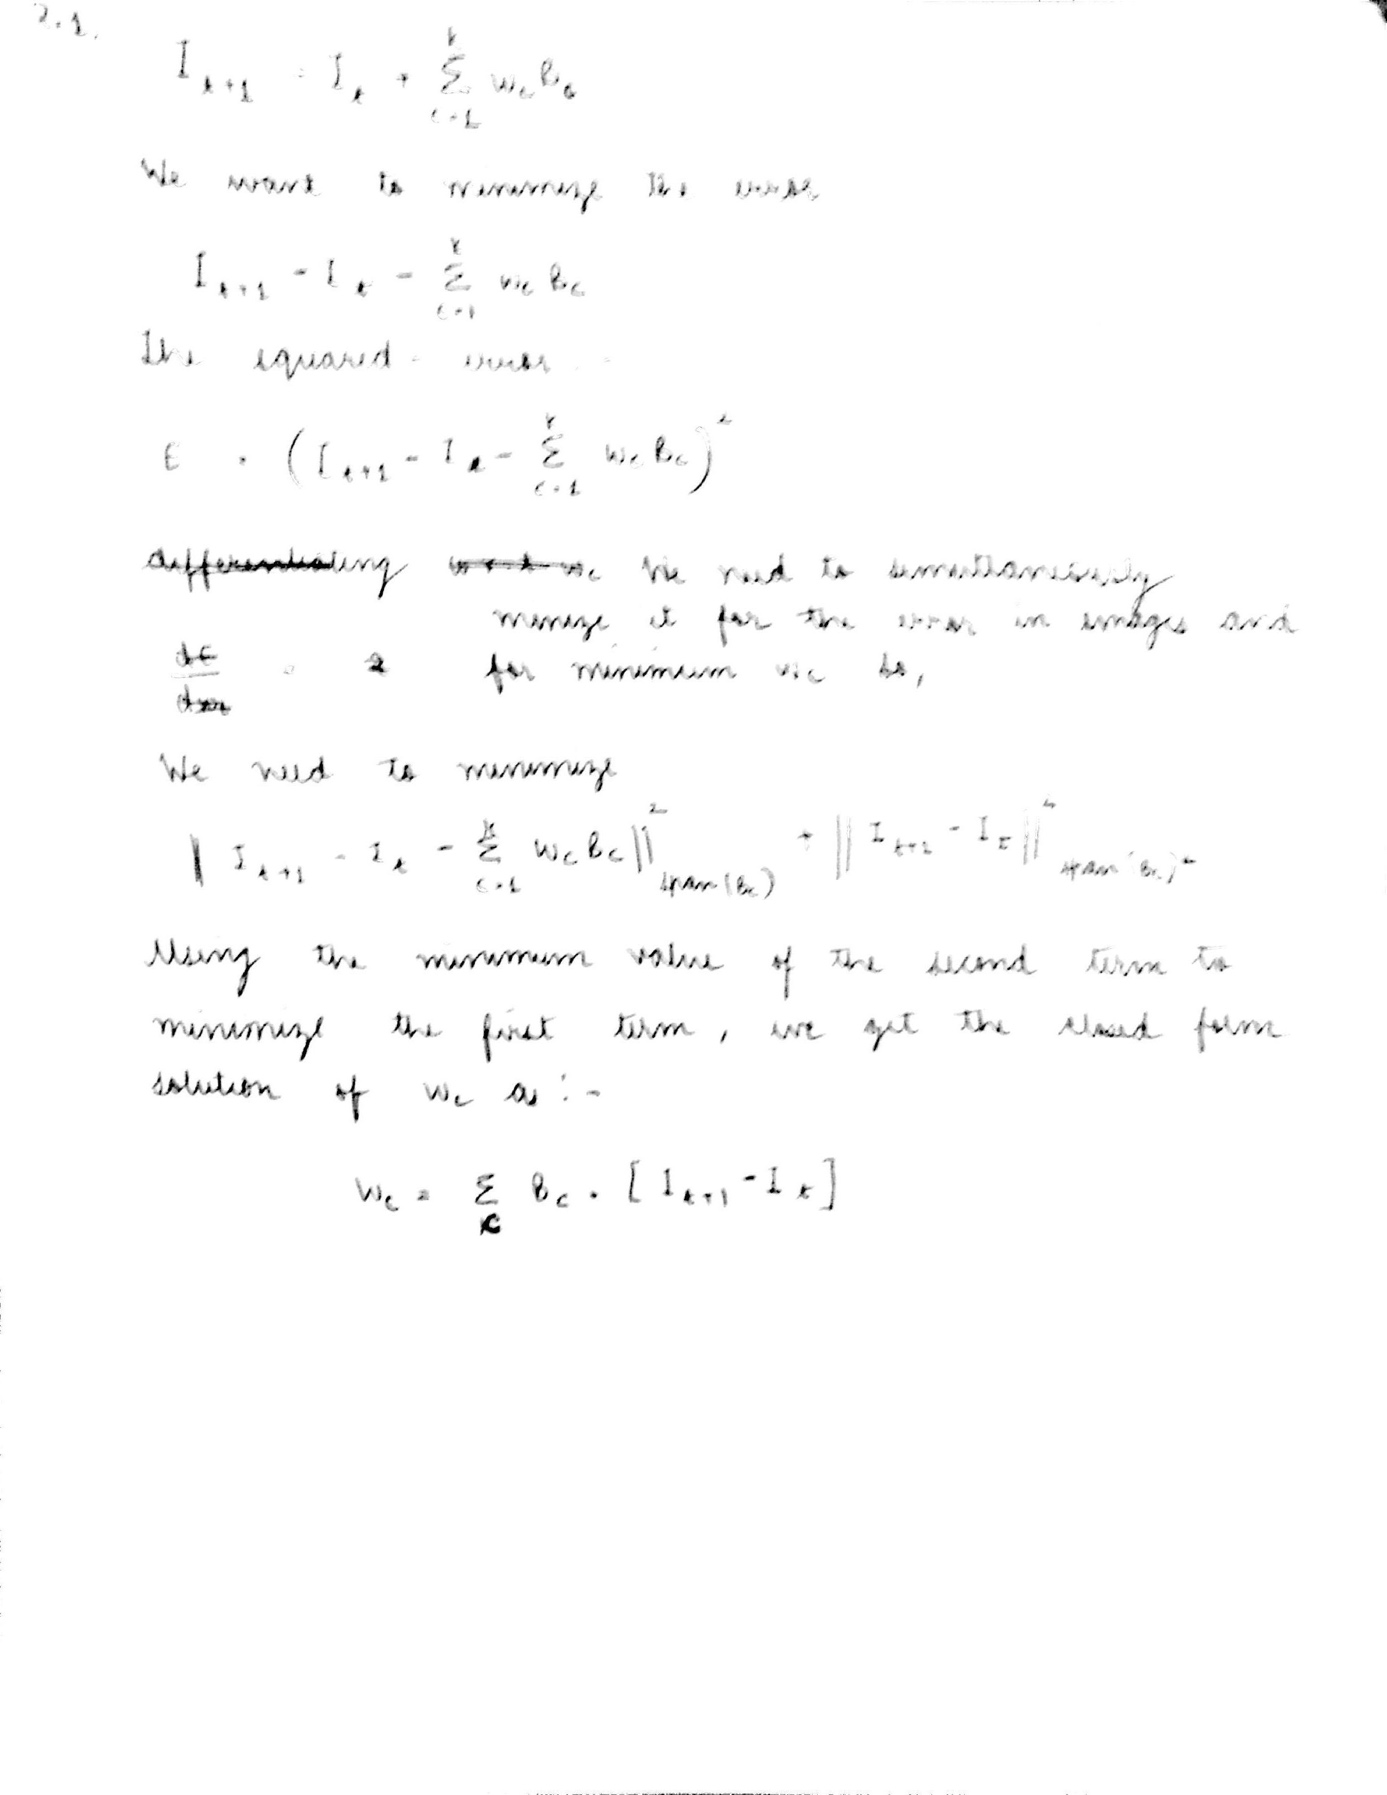 2.1.
I_{t+1} = I_t + Σ_{c=1}^{k} w_c B_c
We want to minimize the error
I_{t+1} - I_t - Σ_{c=1}^{k} w_c B_c
The squared - error -
E = (I_{t+1} - I_t - Σ_{c=1}^{k} w_c B_c)^2
differentiating w.r.t w_c We need to simultaneously
minize it for the error in images and
dE/dw_c = 2 for minimum w_c so,
We need to minimize
|| I_{t+1} - I_t - Σ_{c=1}^{k} w_c B_c ||^2_{span(B_c)} + || I_{t+1} - I_t ||^2_{span(B_c)^⊥}
Using the minimum value of the second term to
minimize the first term, we get the closed form
solution of w_c as :-
w_c = Σ_c B_c . [ I_{t+1} - I_t ]